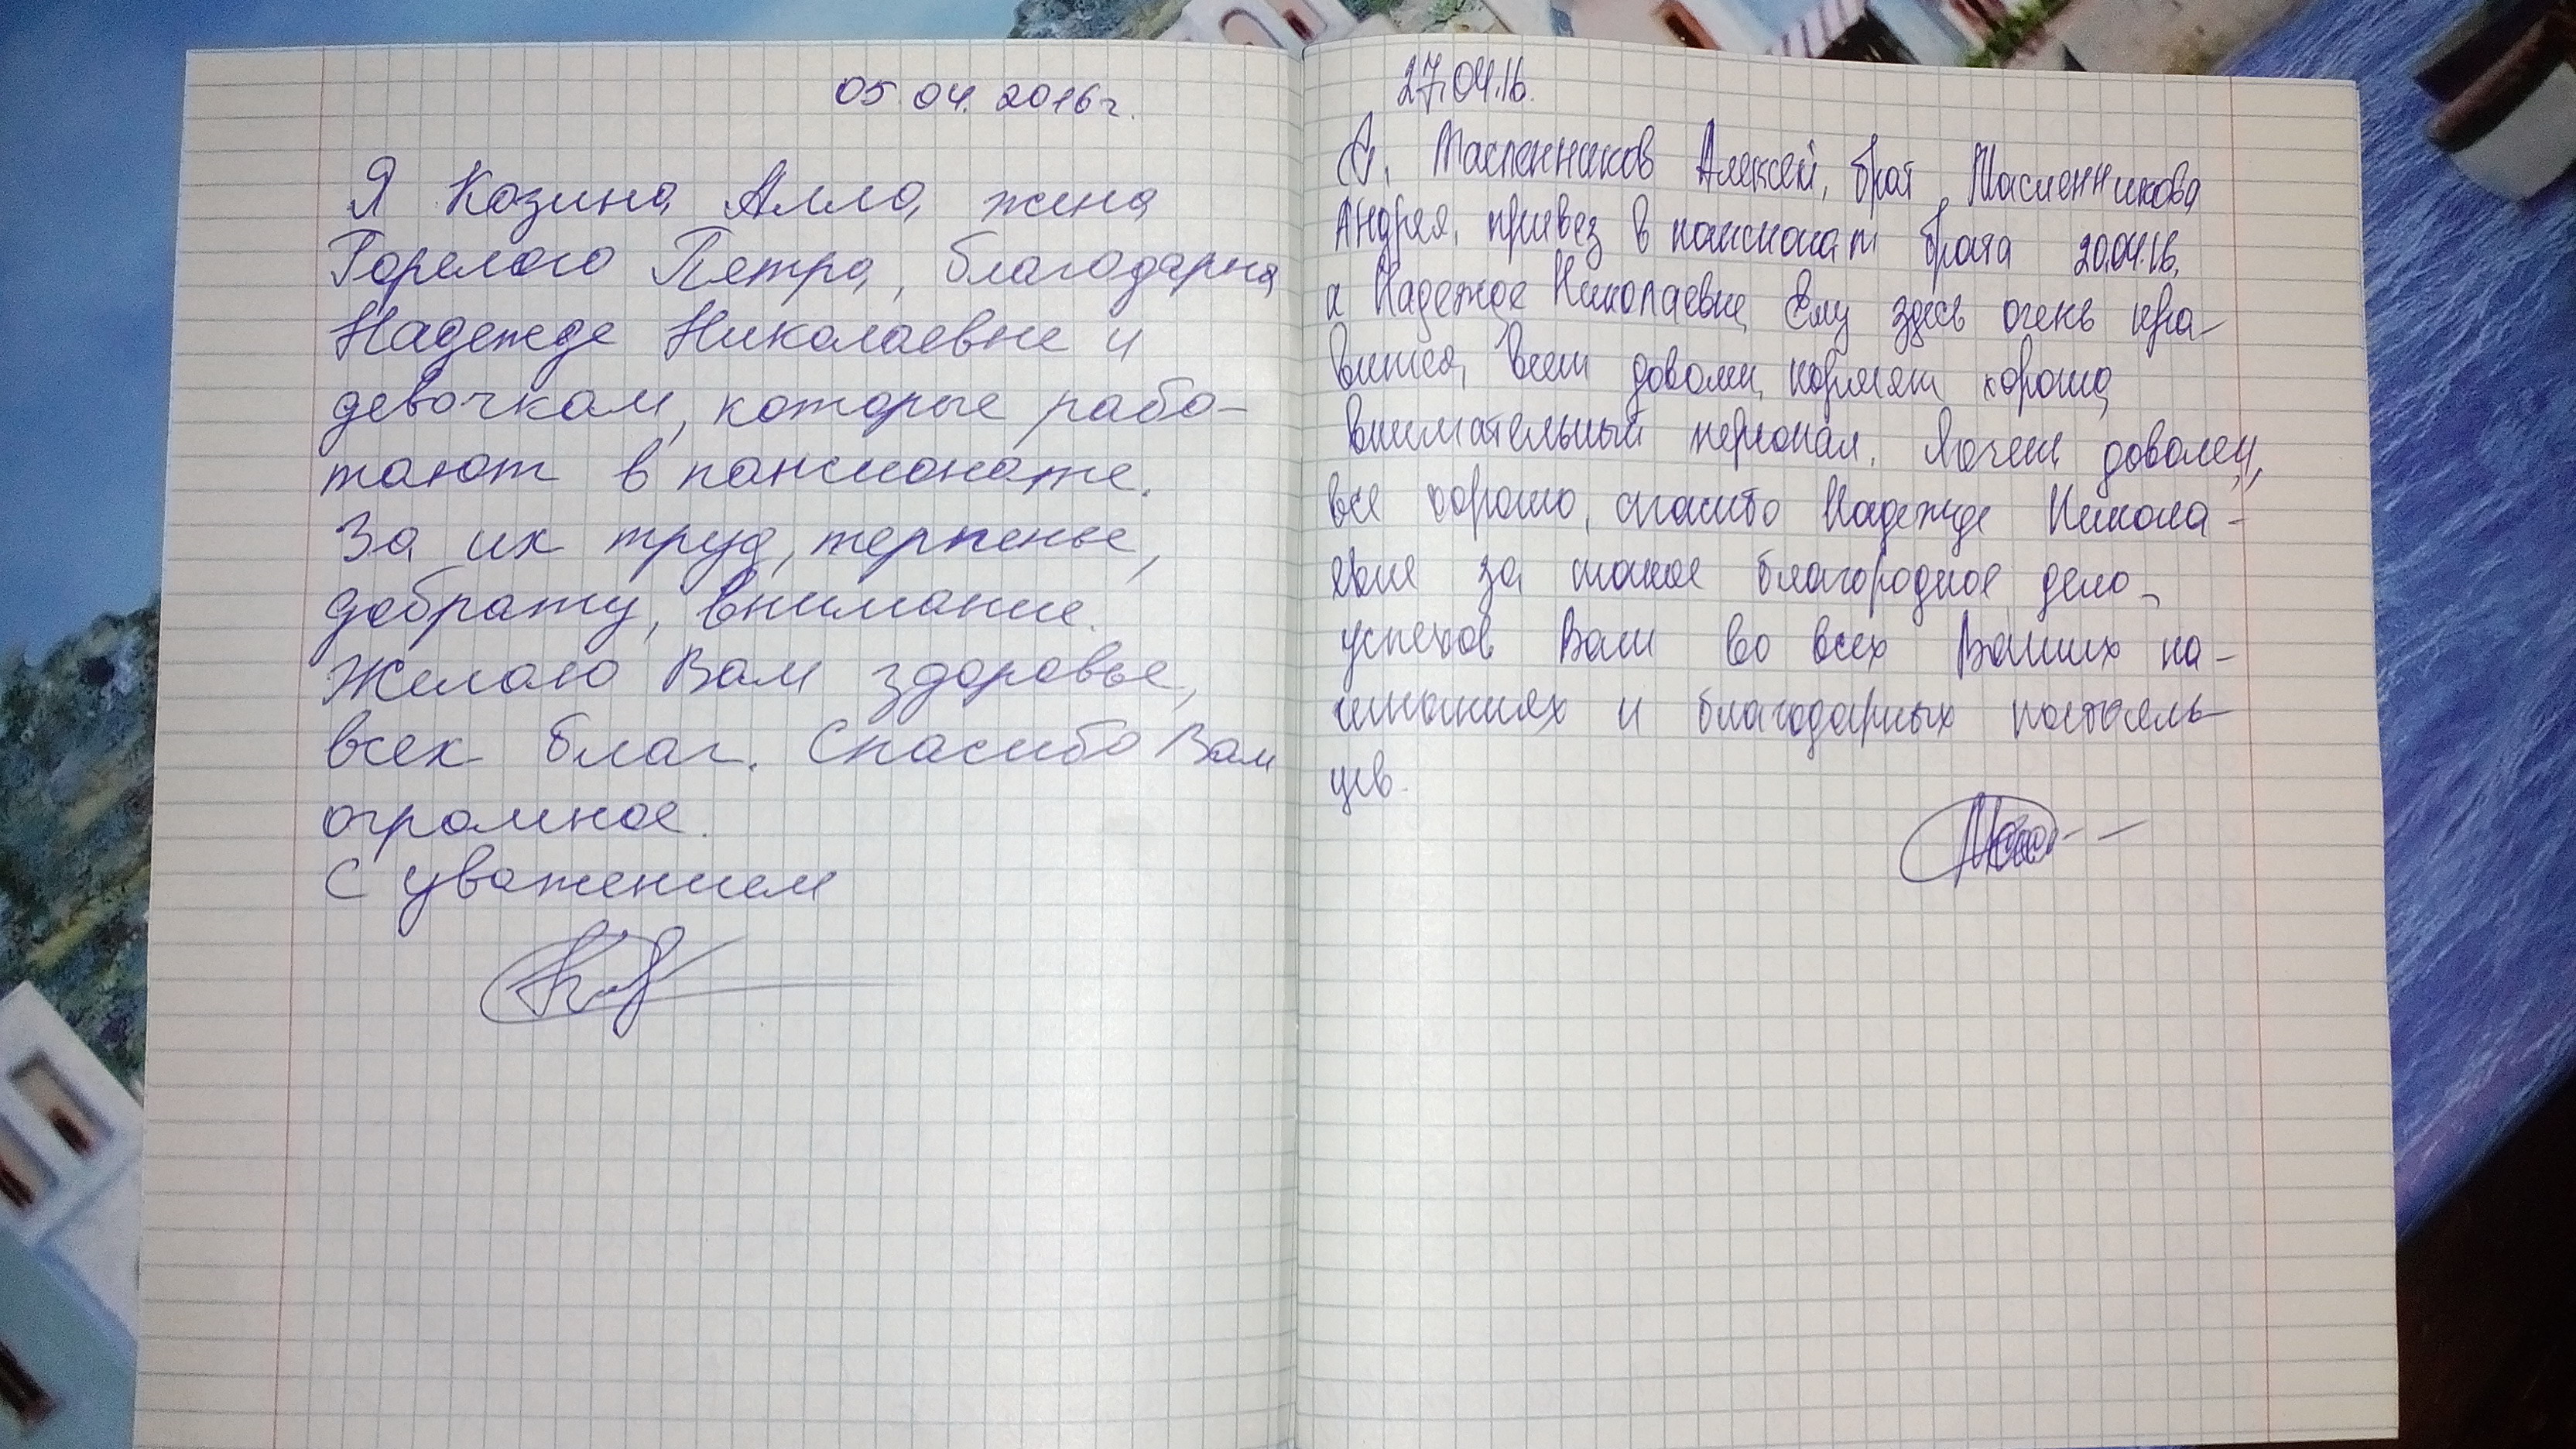 05.04.2016г.
Я Козина Алла, жена
Горелого Петра, благодарна
Надежде Николаевне и
девочкам, которые рабо-
тают в пансионате.
За их труд, терпенье,
доброту, внимание.
Желаю Вам здоровье,
всех благ. Спасибо Вам
огромное.
С уважением
27.04.16.
Я, Масленников Алексей, брат Масленникова
Андрея, привез в пансионат брата 20.04.16.
к Надежде Николаевне, Ему здесь очень нра-
вится, всем доволен, кормят хорошо,
внимательный персонал. Я очень доволен,
все хорошо, спасибо Надежде Никола-
евне за такое благородное дело,
успехов Вам во всех Ваших на-
чинаниях и благодарных постояль-
цев.